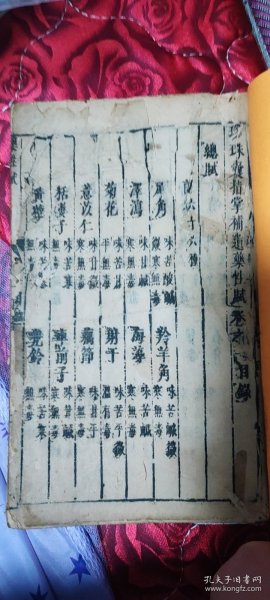 珍珠囊指掌補遺藥性賦卷之一目錄
總賦
犀角 味苦酸鹹微寒無毒 羚羊角 味苦鹹微寒無毒
澤瀉 味甘鹹寒無毒 海藻 味苦鹹寒無毒
菊花 味苦甘平無毒 射干 味苦平微溫有毒
薏苡仁 味甘微寒無毒 藕節
括蔞子 味苦寒無毒 車前子 味甘鹹寒無毒
黃蘗 味苦寒無毒 兜鈴 味苦寒無毒
孔夫子旧书网